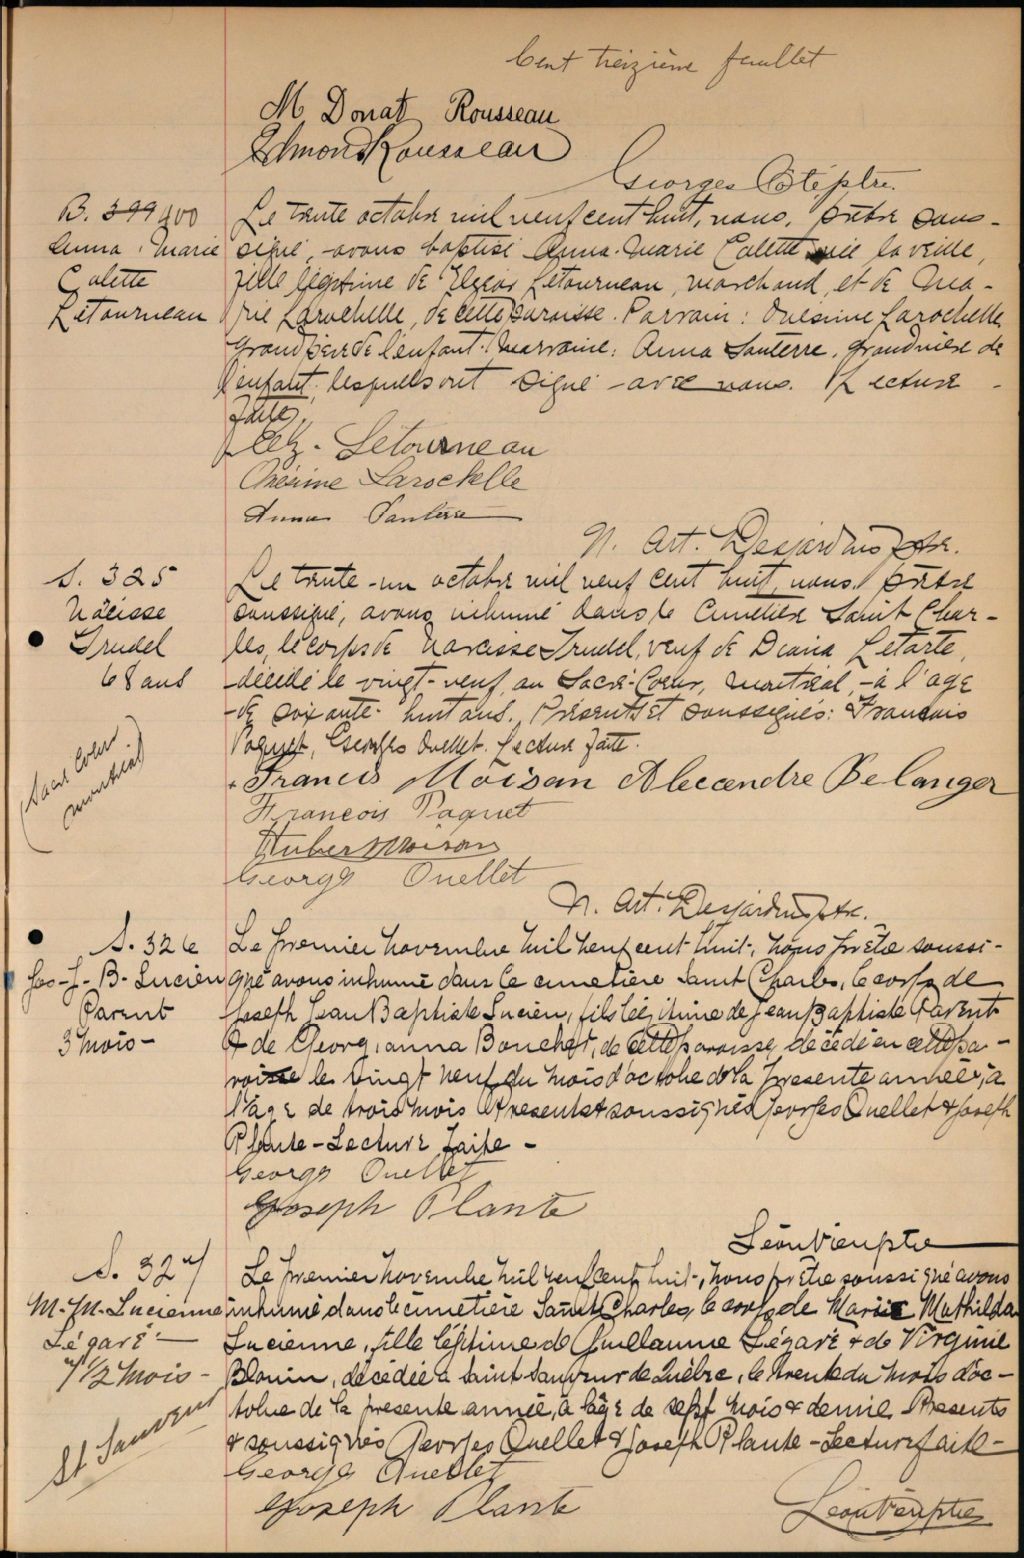 Cent treizième feuillet
M Donat Rousseau
Edmond Rousseau
Georges Côté ptre.
B. 399 400
Anna-Marie
Colette
Létourneau
Le trente octobre mil neuf cent huit, nous, prêtre sous-
signé, avons baptisé Anna-Marie Colette née la veille,
fille légitime de Elzéar Létourneau, marchand, et de Ma-
rie Larochelle, de cette paroisse. Parrain: Onésime Larochelle
grand père de l'enfant. Marraine: Anna Santerre, grand'mère de
l'enfant; lesquels ont signé avec nous. Lecture
faite,
Elz. Létourneau
Onésime Larochelle
Anna Santerre
N. Art. Desjardins ptre.
S. 325
Narcisse
Trudel
68 ans
(Sacré Coeur
Montréal)
Le trente-un octobre mil neuf cent huit, nous, prêtre
soussigné, avons inhumé dans le cimetière Saint Char-
les, le corps de Narcisse Trudel, veuf de Diana Letarte,
décédé le vingt-neuf, au Sacré-Coeur, Montréal, à l'age
de soixante-huit ans. Présents et soussignés: François
Paquet, Georges Ouellet. Lecture faite.
Francis Moisan Alexandre Belanger
François Paquet
Hubert Moisan
George Ouellet
N. Art. Desjardins ptre.
S. 326
Jos-J-B-Lucien
Parent
3 mois-
Le premier novembre mil neuf cent huit, nous prêtre soussi-
gné avons inhumé dans le cimetière Saint Charles, le corps de
Joseph Jean Baptiste Lucien, fils légitime de Jean Baptiste Parent
& de Georgianna Bouchet, de cette paroisse, décédé en cette pa-
roisse le vingt neuf du mois d'octobre de la présente année, à
l'âge de trois mois Présents & soussignés Georges Ouellet & Joseph
Plante-Lecture faite-
George Ouellet
Joseph Plante
Léon Vien ptre
S. 327
M.-M.-Lucienne
Légaré-
7 1/2 mois-
St Sauveur
Le premier novembre mil neuf cent huit, nous prêtre soussigné avons
inhumé dans le cimetière Saint Charles, le corps de Marie Mathilda
Lucienne, fille légitime de Guillaume Légaré & de Virginie
Blouin, décédée à Saint Sauveur de Québec, le trente du mois d'oc-
tobre de la présente année, à l'âge de sept mois & demie. Présents
& soussignés Georges Ouellet & Joseph Plante-Lecture faite-
George Ouellet
Joseph Plante
Léon Vien ptre